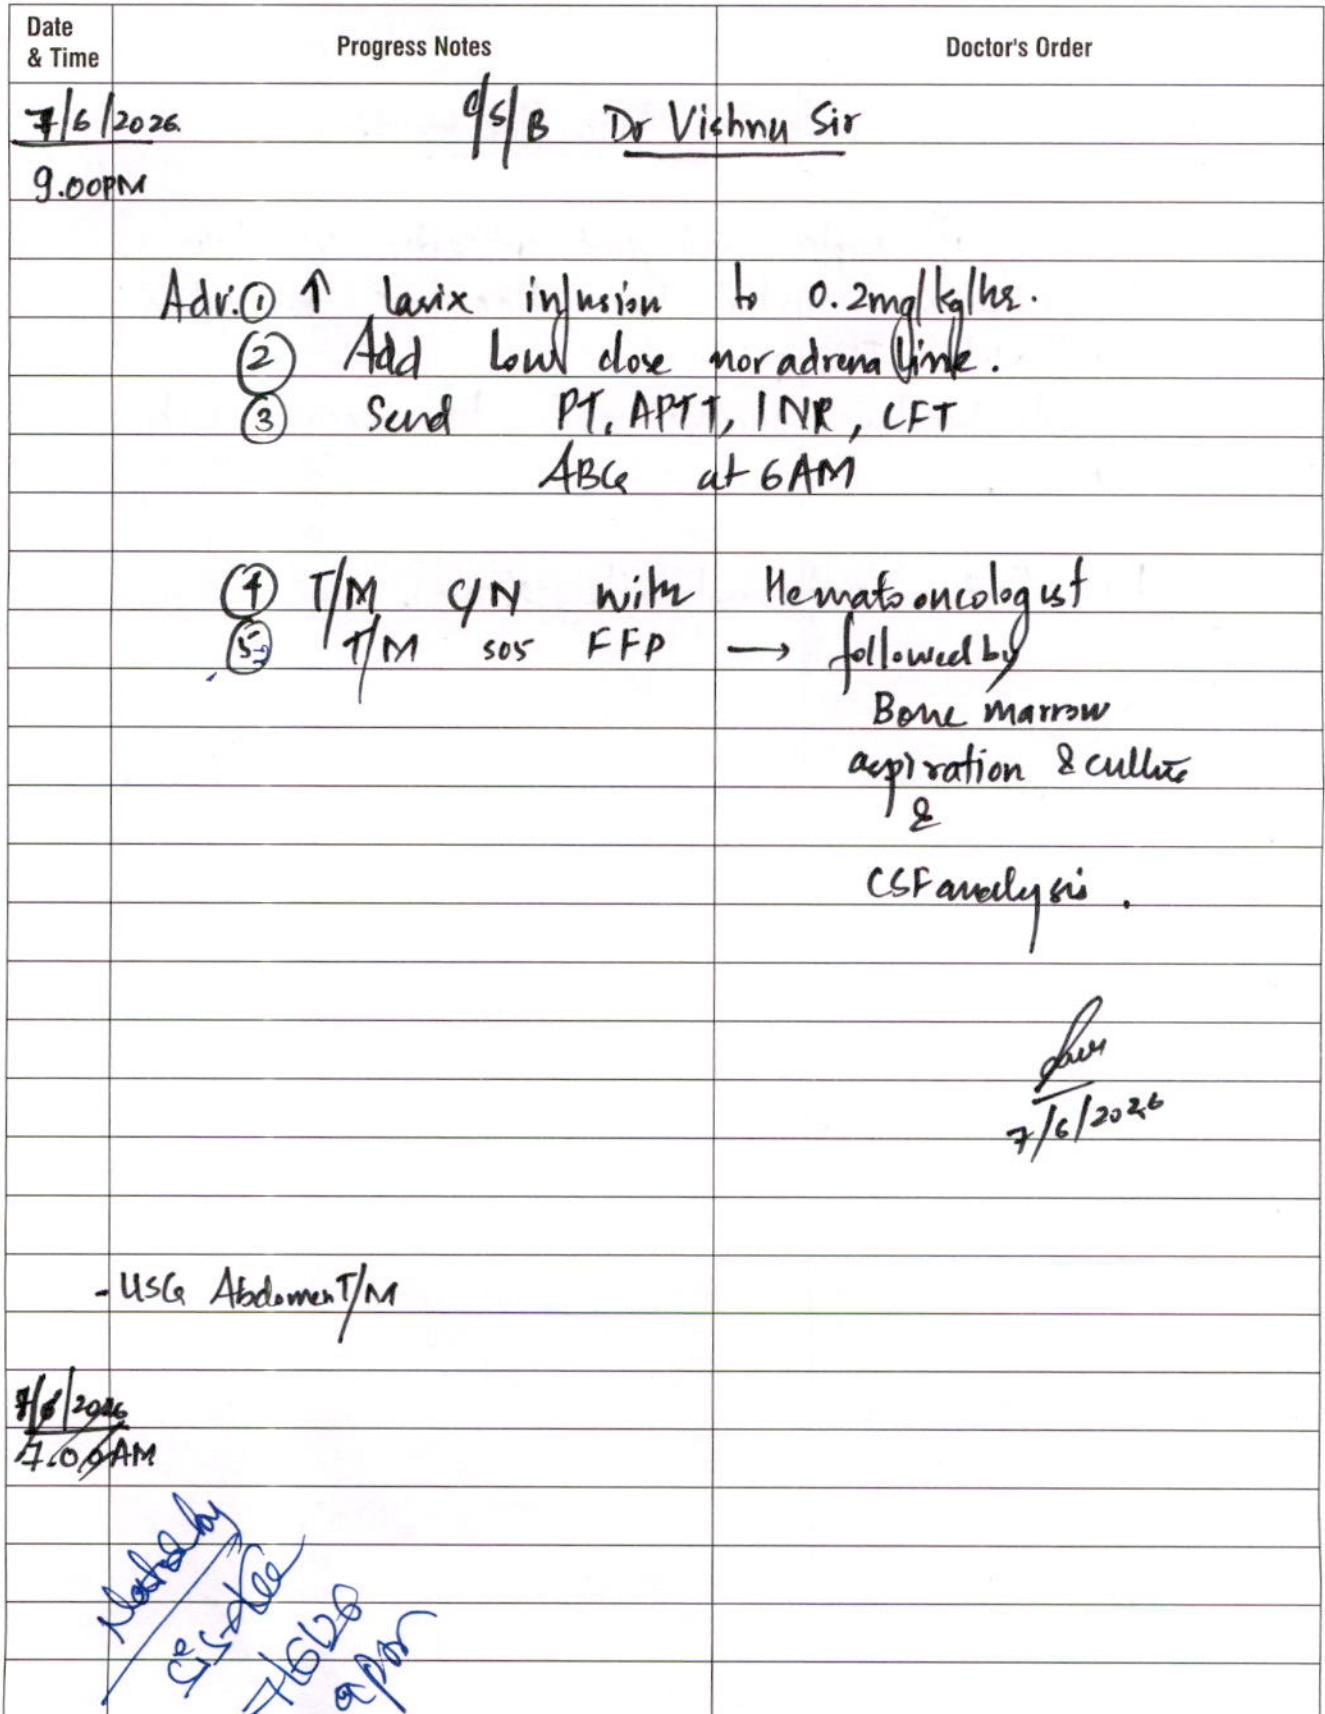 Date & Time
Progress Notes
Doctor's Order
7/6/2026
C/S/B Dr Vishnu Sir
9.00PM
Adv. ① ↑ lasix infusion to 0.2mg/kg/hr.
② Add Low dose noradrenaline.
③ Send PT, APTT, INR, LFT
ABG at 6AM
④ T/M C/N with Hemato oncologist
⑤ T/M SOS FFP → followed by
Bone marrow
aspiration & culture
&
CSF analysis.
7/6/2026
- USG Abdomen T/M
7/6/2026
7.00AM
Noted by
7/6/26
9pm